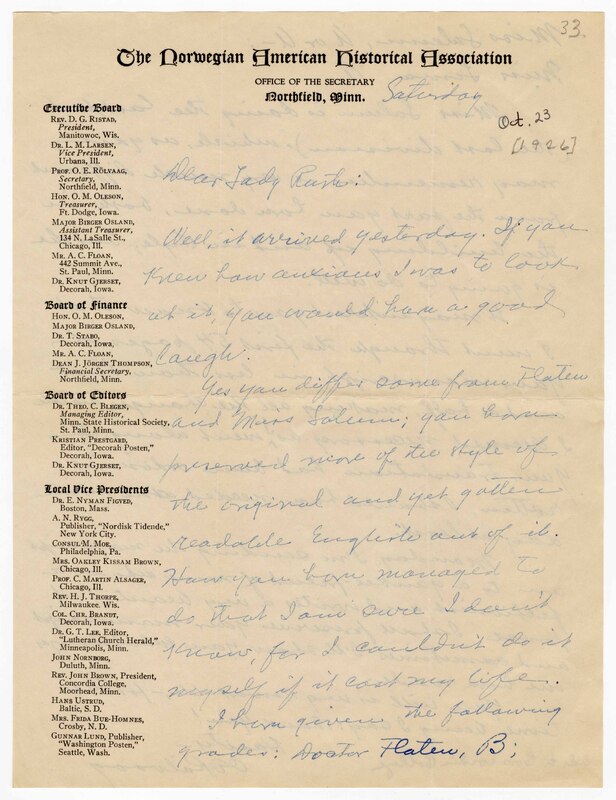 33
The Norwegian American Historical Association
OFFICE OF THE SECRETARY
Northfield, Minn.
Saturday
Oct. 23
[1926]
Executive Board
REV. D. G. RISTAD,
President,
Manitowoc, Wis.
DR. L. M. LARSEN,
Vice President,
Urbana, Ill.
PROF. O. E. RÖLVAAG,
Secretary,
Northfield, Minn.
HON. O. M. OLESON,
Treasurer,
Ft. Dodge, Iowa.
MAJOR BIRGER OSLAND,
Assistant Treasurer,
134 N. LaSalle St.,
Chicago, Ill.
MR. A. C. FLOAN,
442 Summit Ave.,
St. Paul, Minn.
DR. KNUT GJERSET,
Decorah, Iowa.
Board of Finance
HON. O. M. OLESON,
MAJOR BIRGER OSLAND,
DR. T. STABO,
Decorah, Iowa.
MR. A. C. FLOAN,
DEAN J. JÖRGEN THOMPSON,
Financial Secretary,
Northfield, Minn.
Board of Editors
DR. THEO. C. BLEGEN,
Managing Editor,
Minn. State Historical Society,
St. Paul, Minn.
KRISTIAN PRESTGARD,
Editor, "Decorah Posten,"
Decorah, Iowa.
DR. KNUT GJERSET,
Decorah, Iowa.
Local Vice Presidents
DR. E. NYMAN FIGVED,
Boston, Mass.
A. N. RYGG,
Publisher, "Nordisk Tidende,"
New York City.
CONSUL M. MOE,
Philadelphia, Pa.
MRS. OAKLEY KISSAM BROWN,
Chicago, Ill.
PROF. C. MARTIN ALSAGER,
Chicago, Ill.
REV. H. J. THORPE,
Milwaukee. Wis.
COL. CHR. BRANDT,
Decorah, Iowa.
DR. G. T. LEE, Editor,
"Lutheran Church Herald,"
Minneapolis, Minn.
JOHN NORNBORG,
Duluth, Minn.
REV. JOHN BROWN, President,
Concordia College,
Moorhead, Minn.
HANS USTRUD,
Baltic, S. D.
MRS. FRIDA BUE-HOMNES,
Crosby, N. D.
GUNNAR LUND, Publisher,
"Washington Posten,"
Seattle, Wash.
Dear Lady Ruth:
Well, it arrived yesterday. If you
knew how anxious I was to look
at it, you would have a good
laugh.
Yes you differ some from Flaten
and Miss Solum; you have
preserved more of the style of
the original and yet gotten
readable English out of it.
How you have managed to
do that I am sure I don't
know for I couldn't do it
myself if it cost my life.
I have given the following
grades: Doctor Flaten, B;